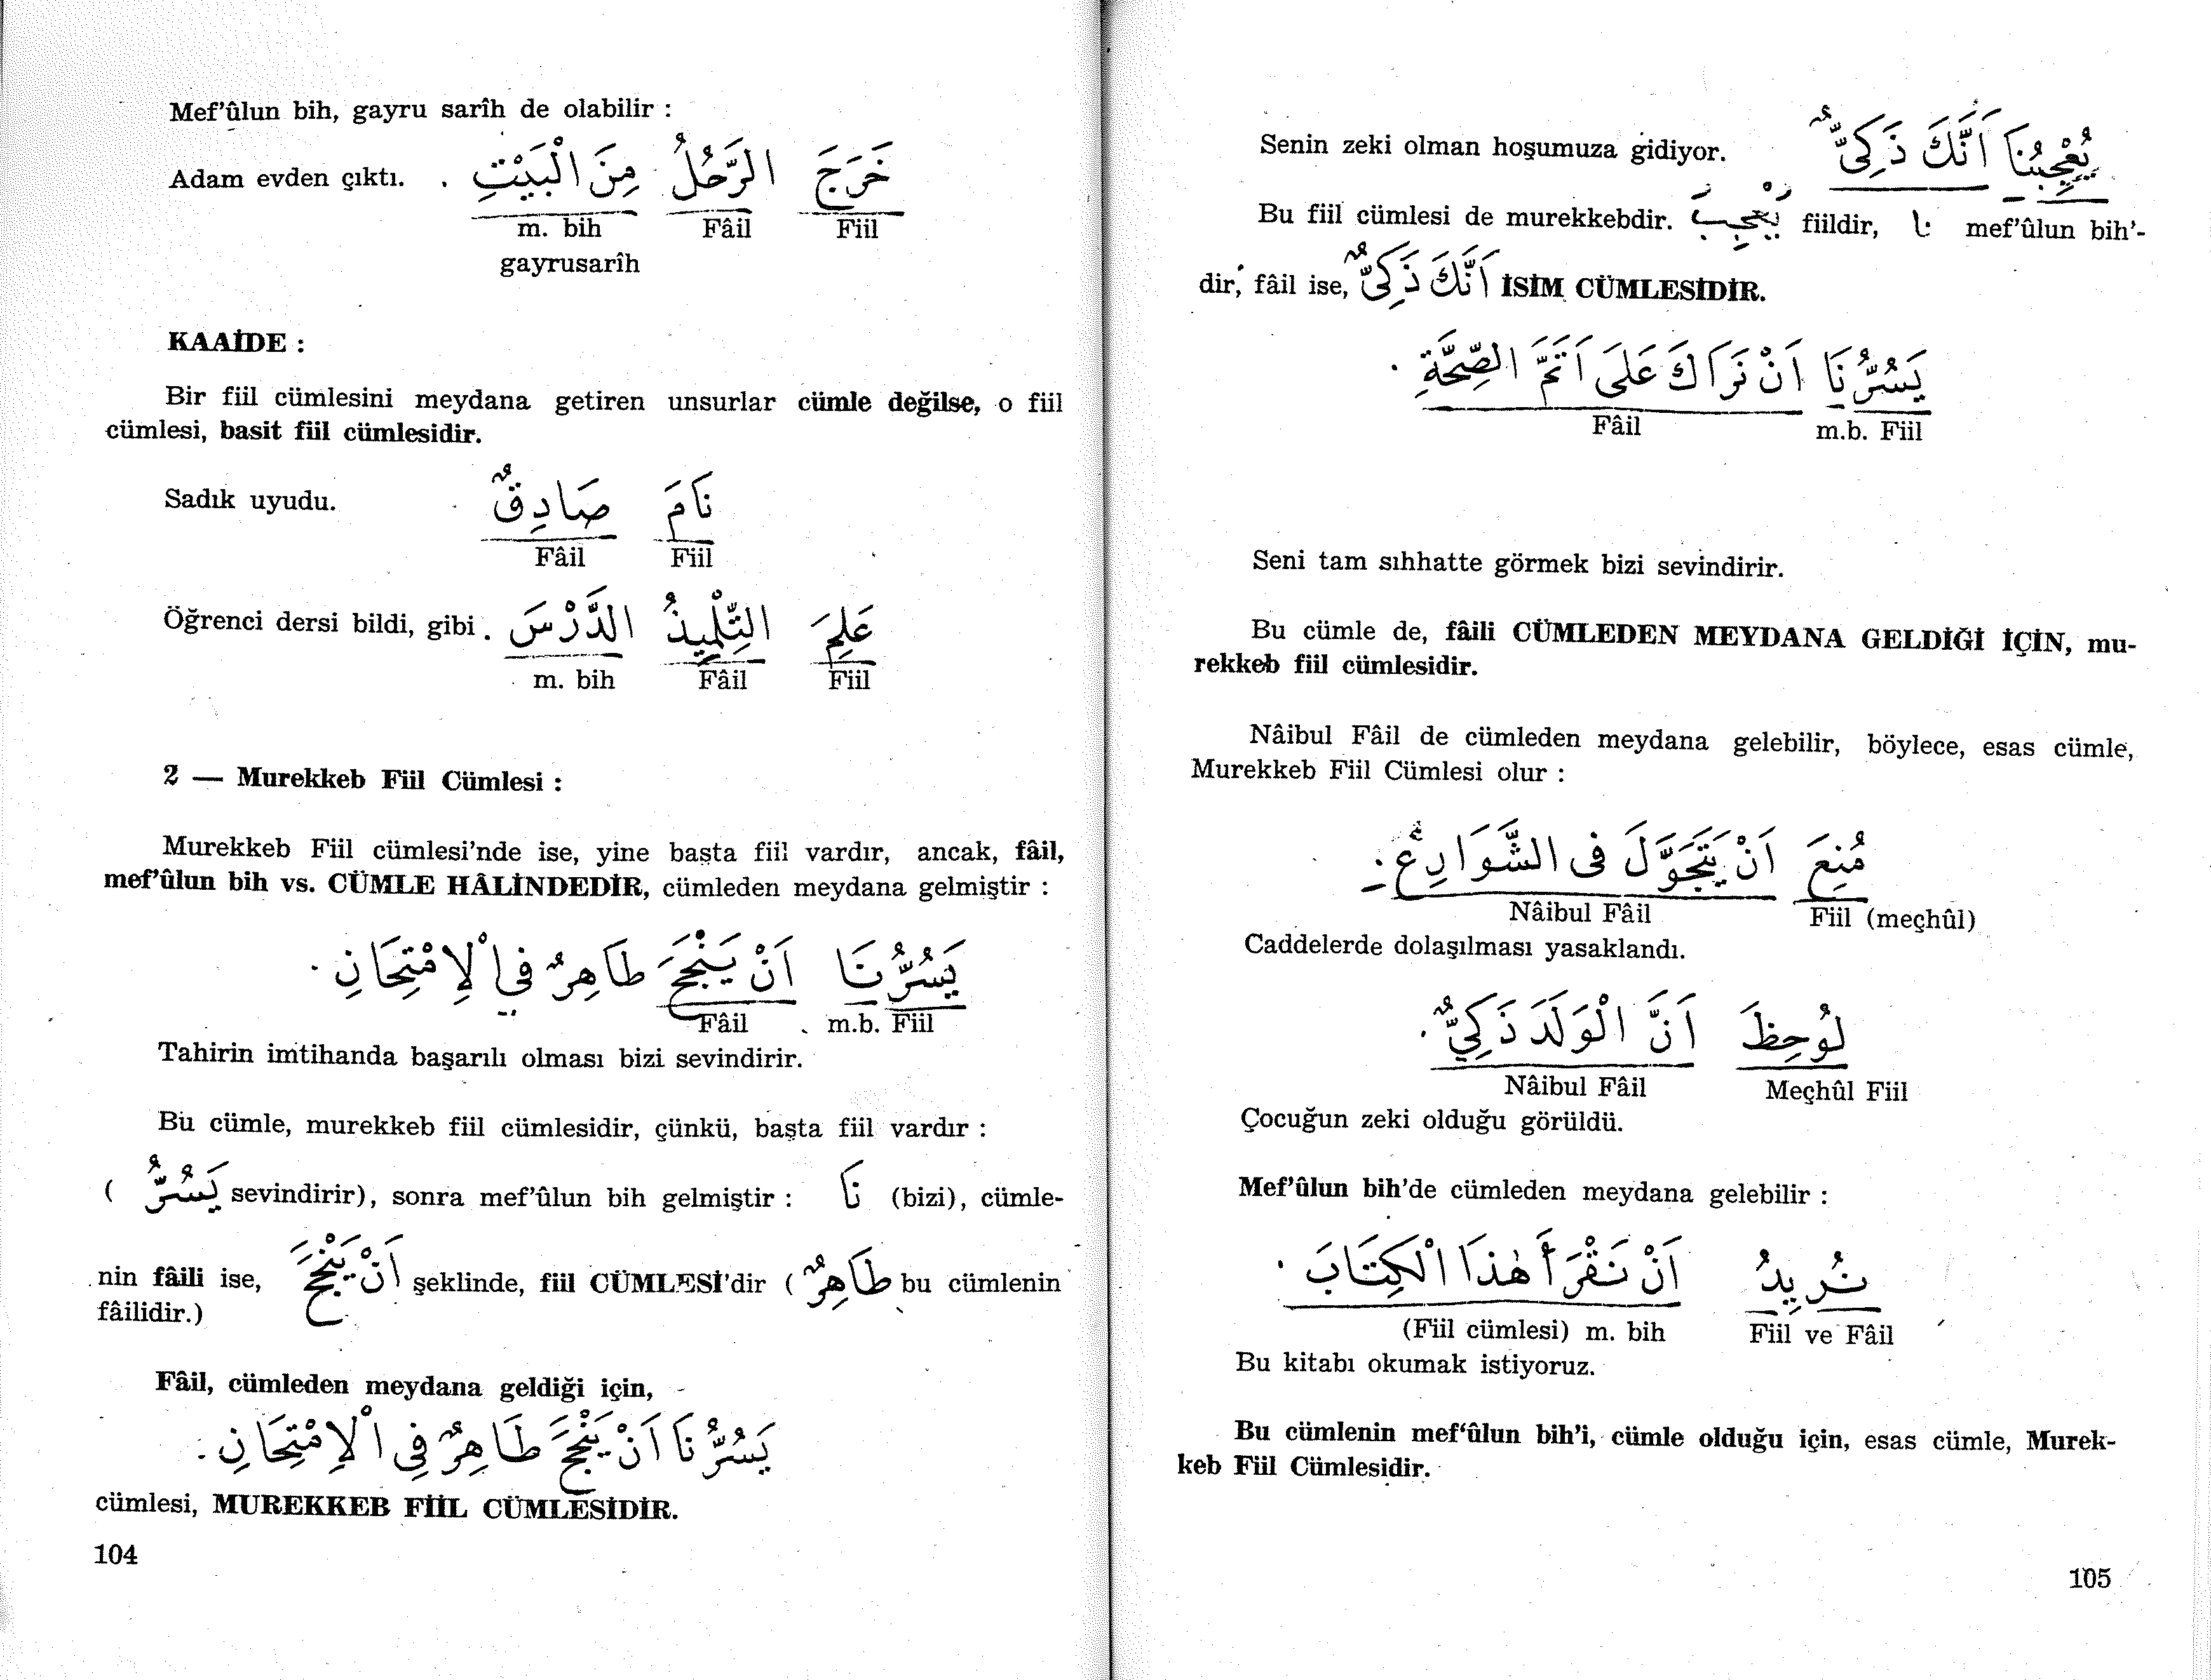 Mef'ûlun bih, gayru sarîh de olabilir :
Adam evden çıktı. . خَرَجَ الرَّجُلُ مِنَ الْبَيْتِ
m. bih Fâil Fiil
gayrusarîh
KAAİDE :
Bir fiil cümlesini meydana getiren unsurlar cümle değilse, o fiil
cümlesi, basit fiil cümlesidir.
Sadık uyudu. نَامَ صَادِقٌ
Fâil Fiil
Öğrenci dersi bildi, gibi . عَلِمَ التِّلْمِيذُ الدَّرْسَ
m. bih Fâil Fiil
2 — Murekkeb Fiil Cümlesi :
Murekkeb Fiil cümlesi'nde ise, yine başta fiil vardır, ancak, fâil,
mef'ûlun bih vs. CÜMLE HÂLİNDEDİR, cümleden meydana gelmiştir :
يَسُرُّنَا اَنْ يَنْجَحَ طَاهِرٌ فِي الْاِمْتِحَانِ .
Fâil m.b. Fiil
Tahirin imtihanda başarılı olması bizi sevindirir.
Bu cümle, murekkeb fiil cümlesidir, çünkü, başta fiil vardır :
( يَسُرُّ sevindirir), sonra mef'ûlun bih gelmiştir : نَا (bizi), cümle-
nin fâili ise, اَنْ يَنْجَحَ şeklinde, fiil CÜMLESİ'dir ( طَاهِرٌ bu cümlenin
fâilidir.)
Fâil, cümleden meydana geldiği için,
يَسُرُّنَا اَنْ يَنْجَحَ طَاهِرٌ فِي الْاِمْتِحَانِ .
cümlesi, MUREKKEB FİİL CÜMLESİDİR.
104
Senin zeki olman hoşumuza gidiyor. يُعْجِبُنَا اَنَّكَ ذَكِيٌّ
Bu fiil cümlesi de murekkebdir. يُعْجِبُ fiildir, نا mef'ûlun bih'-
dir, fâil ise, اَنَّكَ ذَكِيٌّ İSİM CÜMLESİDİR.
يَسُرُّنَا اَنْ نَرَاكَ عَلَى اَتَمِّ الصِّحَّةِ .
Fâil m.b. Fiil
Seni tam sıhhatte görmek bizi sevindirir.
Bu cümle de, fâili CÜMLEDEN MEYDANA GELDİĞİ İÇİN, mu-
rekkeb fiil cümlesidir.
Nâibul Fâil de cümleden meydana gelebilir, böylece, esas cümle,
Murekkeb Fiil Cümlesi olur :
مُنِعَ اَنْ يَتَجَوَّلَ فى الشَّوَارِعِ .
Nâibul Fâil Fiil (meçhûl)
Caddelerde dolaşılması yasaklandı.
لُوحِظَ اَنَّ الْوَلَدَ ذَكِيٌّ .
Nâibul Fâil Meçhûl Fiil
Çocuğun zeki olduğu görüldü.
Mef'ûlun bih'de cümleden meydana gelebilir :
نُرِيدُ اَنْ نَقْرَأَ هٰذَا الْكِتَابَ .
(Fiil cümlesi) m. bih Fiil ve Fâil
Bu kitabı okumak istiyoruz.
Bu cümlenin mef'ûlun bih'i, cümle olduğu için, esas cümle, Murek-
keb Fiil Cümlesidir.
105